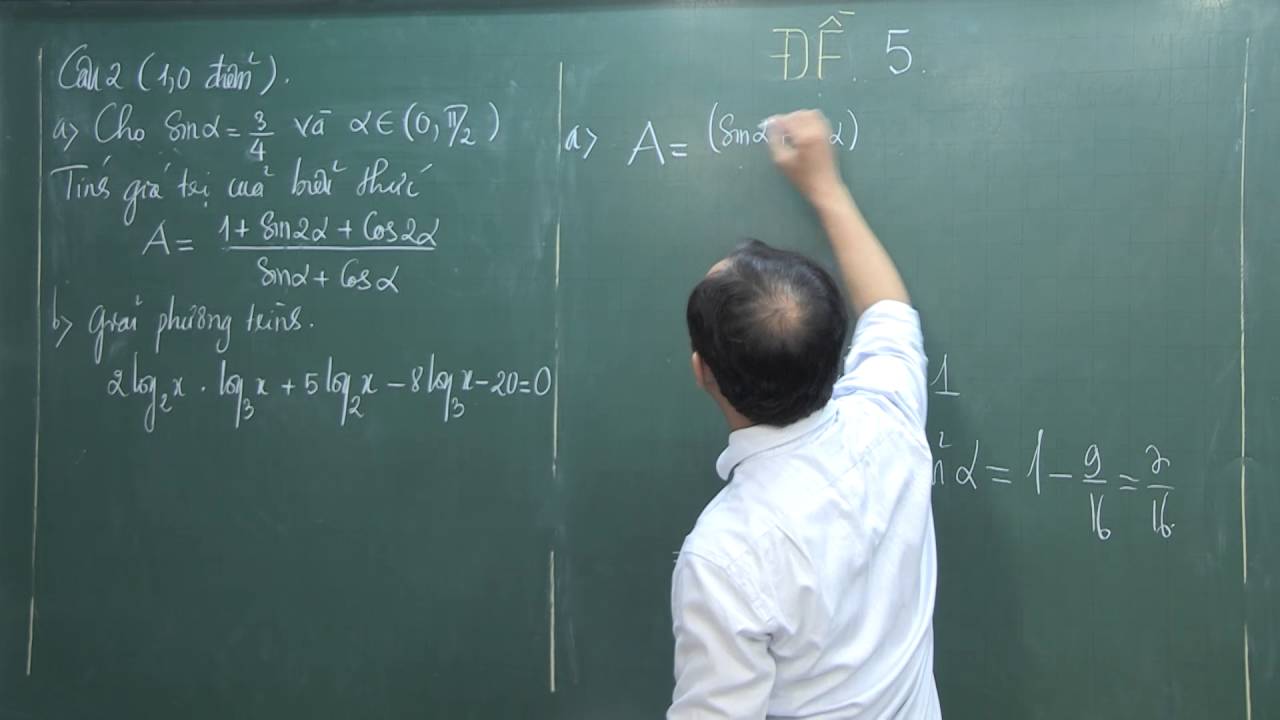 ĐỀ 5.
Câu 2 (1,0 điểm).
a> Cho Sinα = 3/4 và α ∈ (0, π/2)
Tính giá trị của biểu thức
A = (1 + Sin2α + Cos2α)/(Sinα + Cosα)
b> Giải phương trình.
2log₂x . log₃x + 5log₂x - 8log₃x - 20 = 0
a> A = (Sinα α)
1
²α = 1 - 9/16 = 7/16